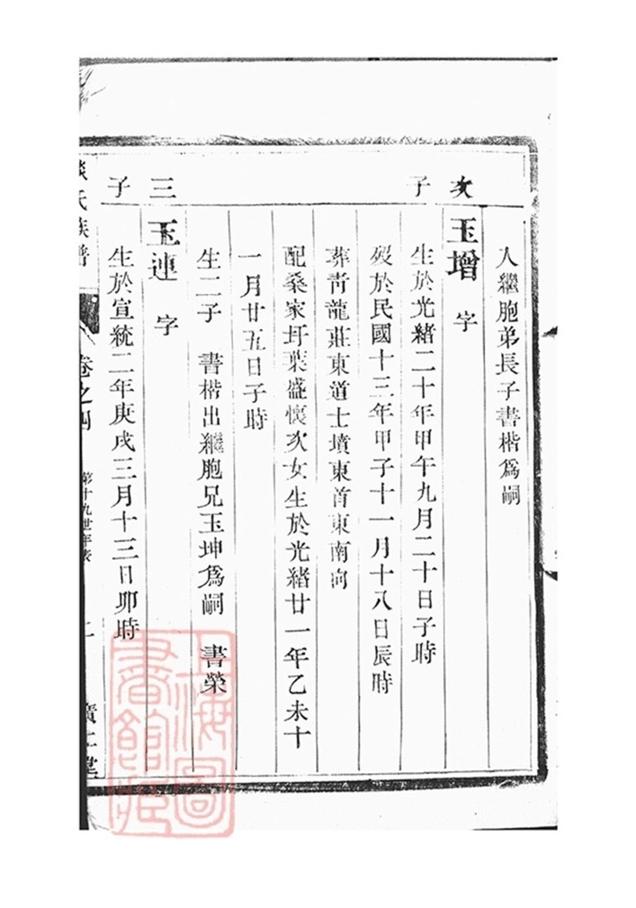 人繼胞弟長子書楷爲嗣
次子
玉增 字
生於光緒二十年甲午九月二十日子時
殁於民國十三年甲子十一月十八日辰時
葬靑龍莊東道士墳東首東南向
配桑家圩葉盛懷次女生於光緒廿一年乙未十
一月廿五日子時
生二子 書楷出繼胞兄玉坤爲嗣 書榮
三子
玉連 字
生於宣統二年庚戌三月十三日卯時
氏族譜 卷之四 第十九世年表 二 堂